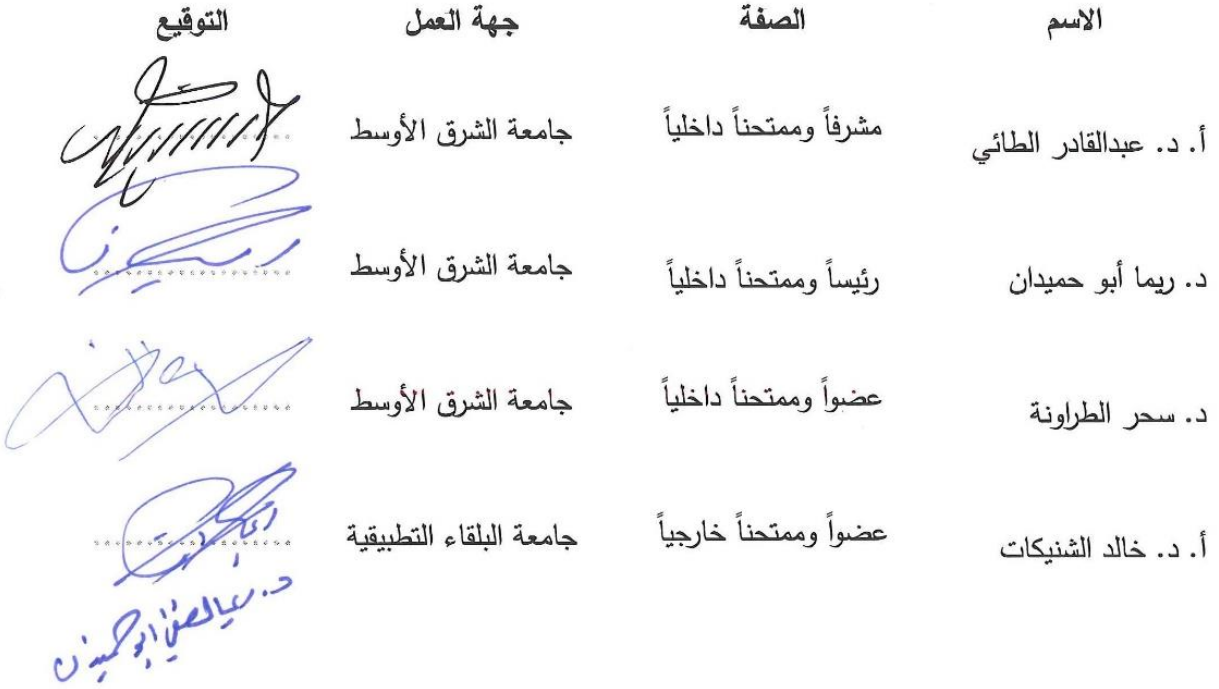 الاسم الصفة جهة العمل التوقيع
أ. د. عبدالقادر الطائي مشرفاً وممتحناً داخلياً جامعة الشرق الأوسط
د. ريما أبو حميدان رئيساً وممتحناً داخلياً جامعة الشرق الأوسط
د. سحر الطراونة عضواً وممتحناً داخلياً جامعة الشرق الأوسط
أ. د. خالد الشنيكات عضواً وممتحناً خارجياً جامعة البلقاء التطبيقية